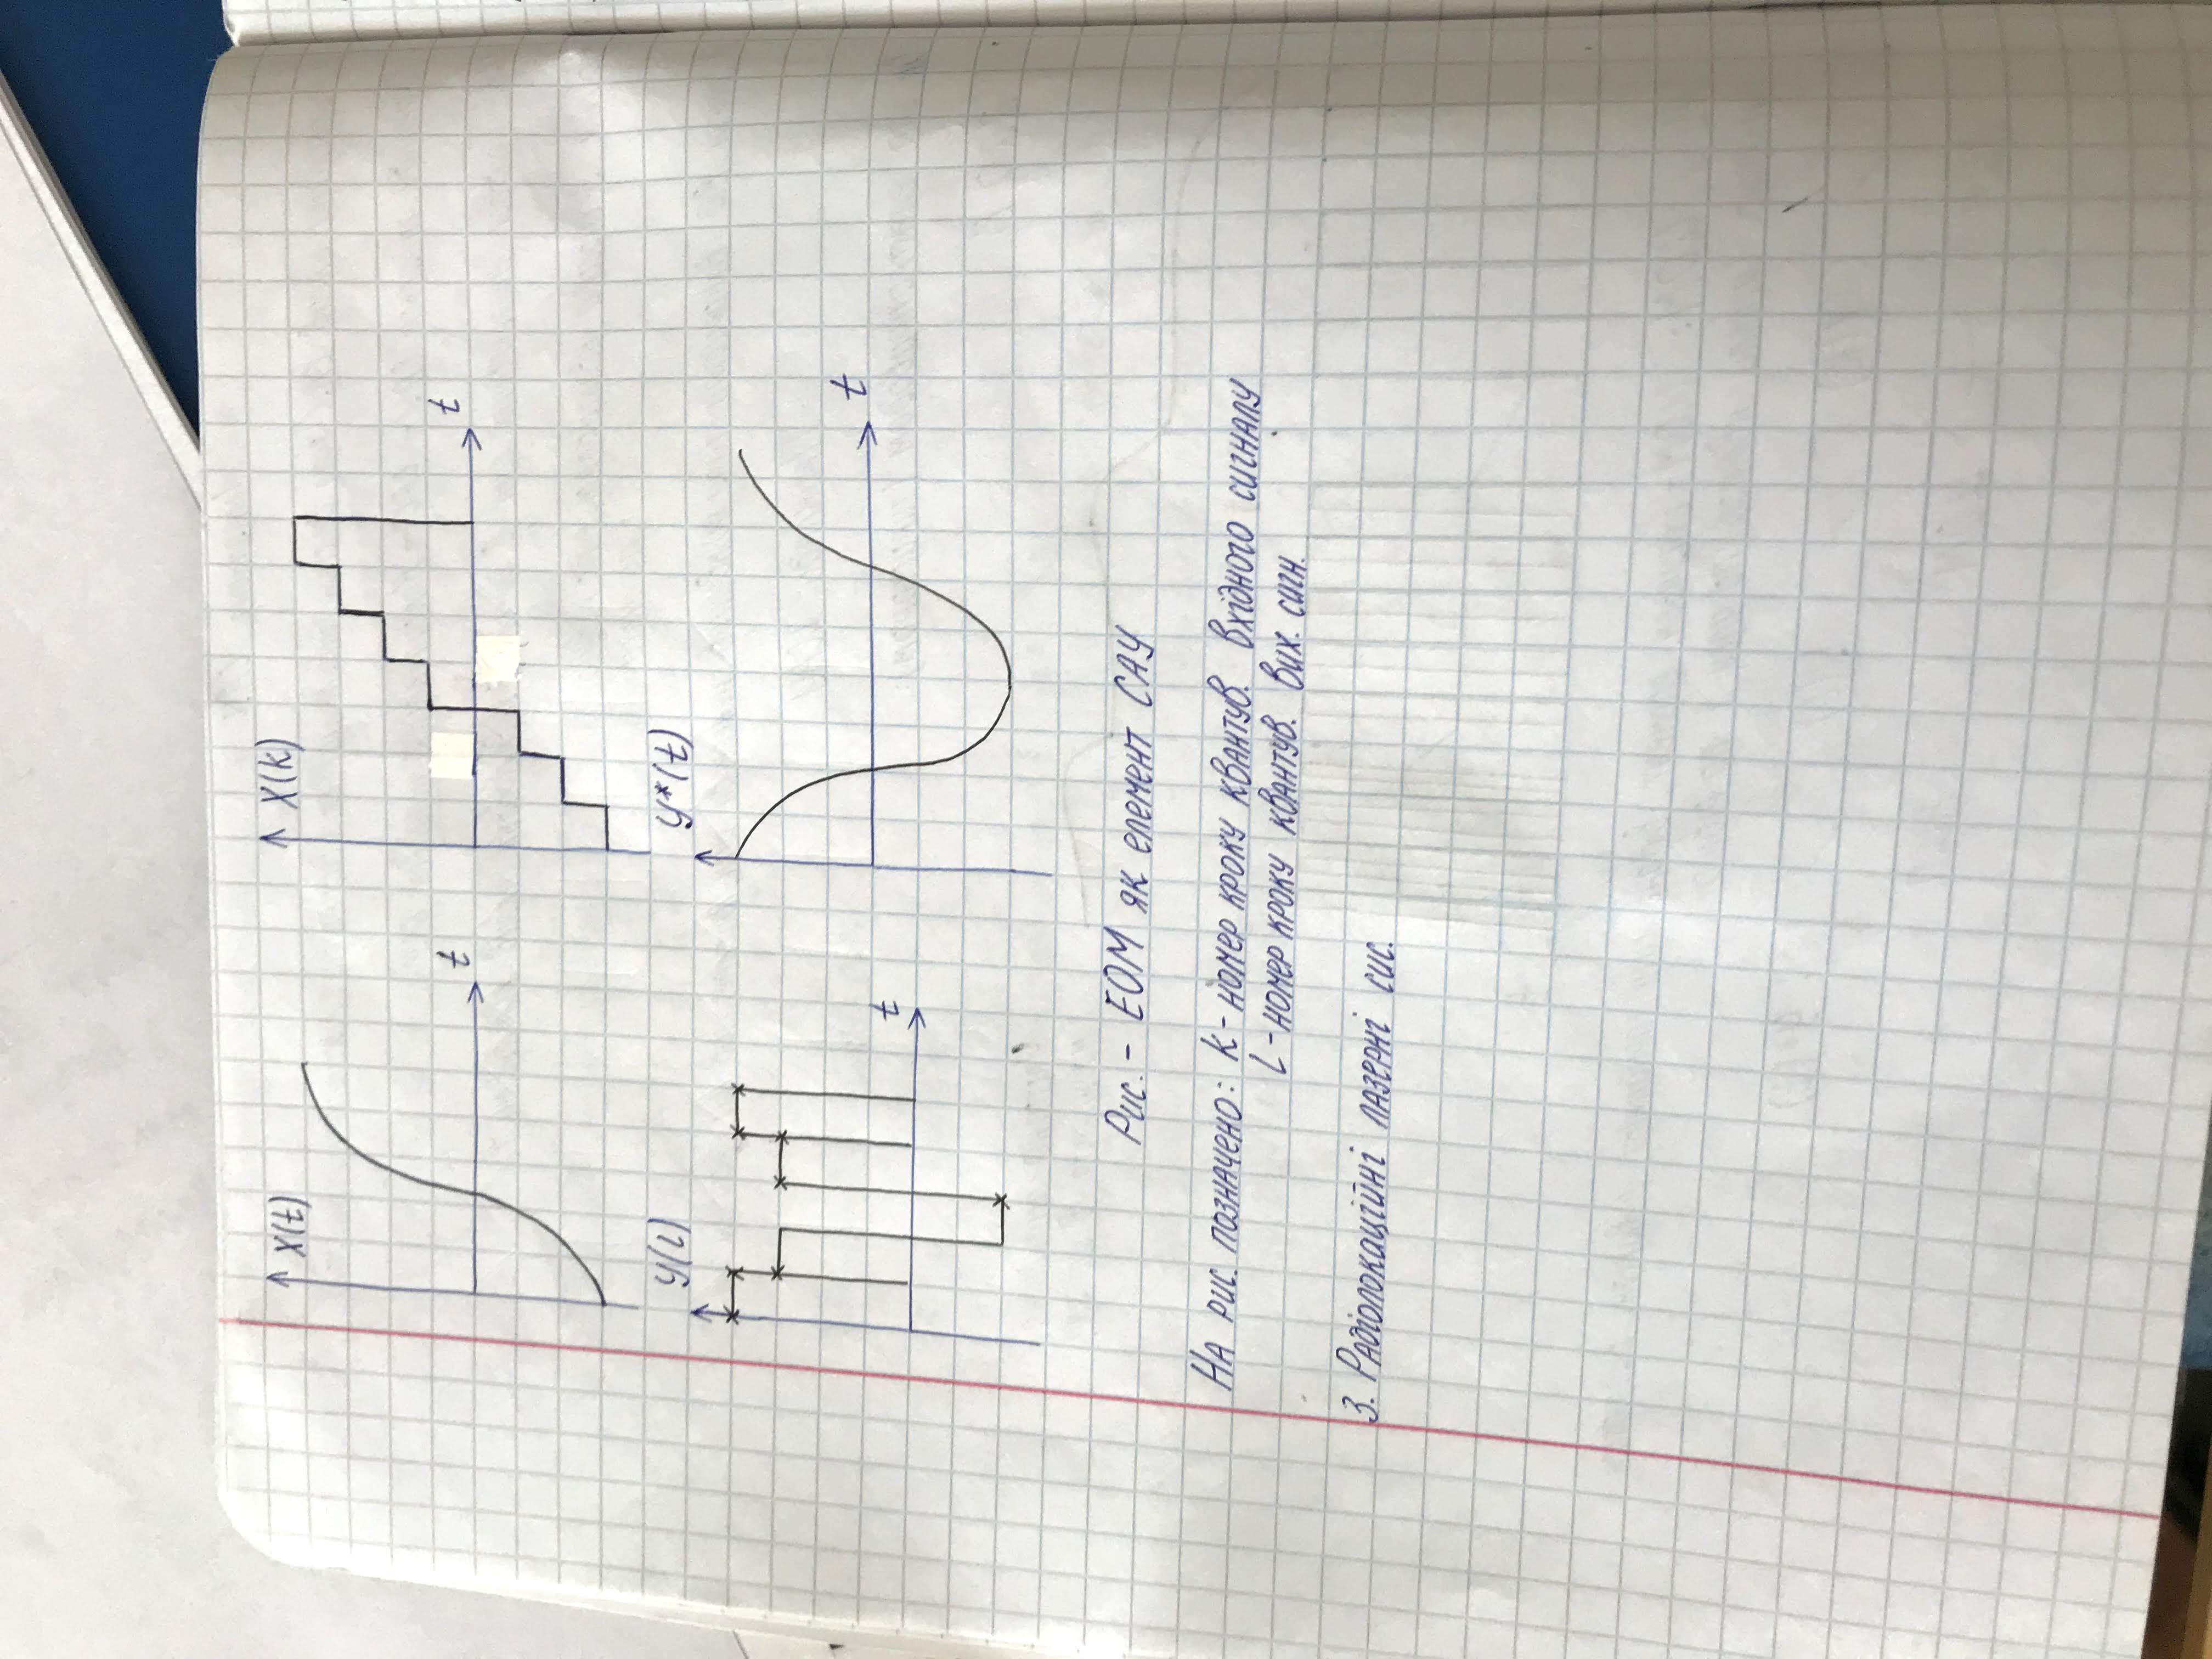 X(t)
X(k)
t
t
У(l)
У*(t)
t
t
Рис. - ЕОМ як елемент САУ
На рис. позначено: k - номер кроку квантув. вхідного сигналу
l - номер кроку квантув. вих. сигн.
3. Радіолокаційні лазерні сис.